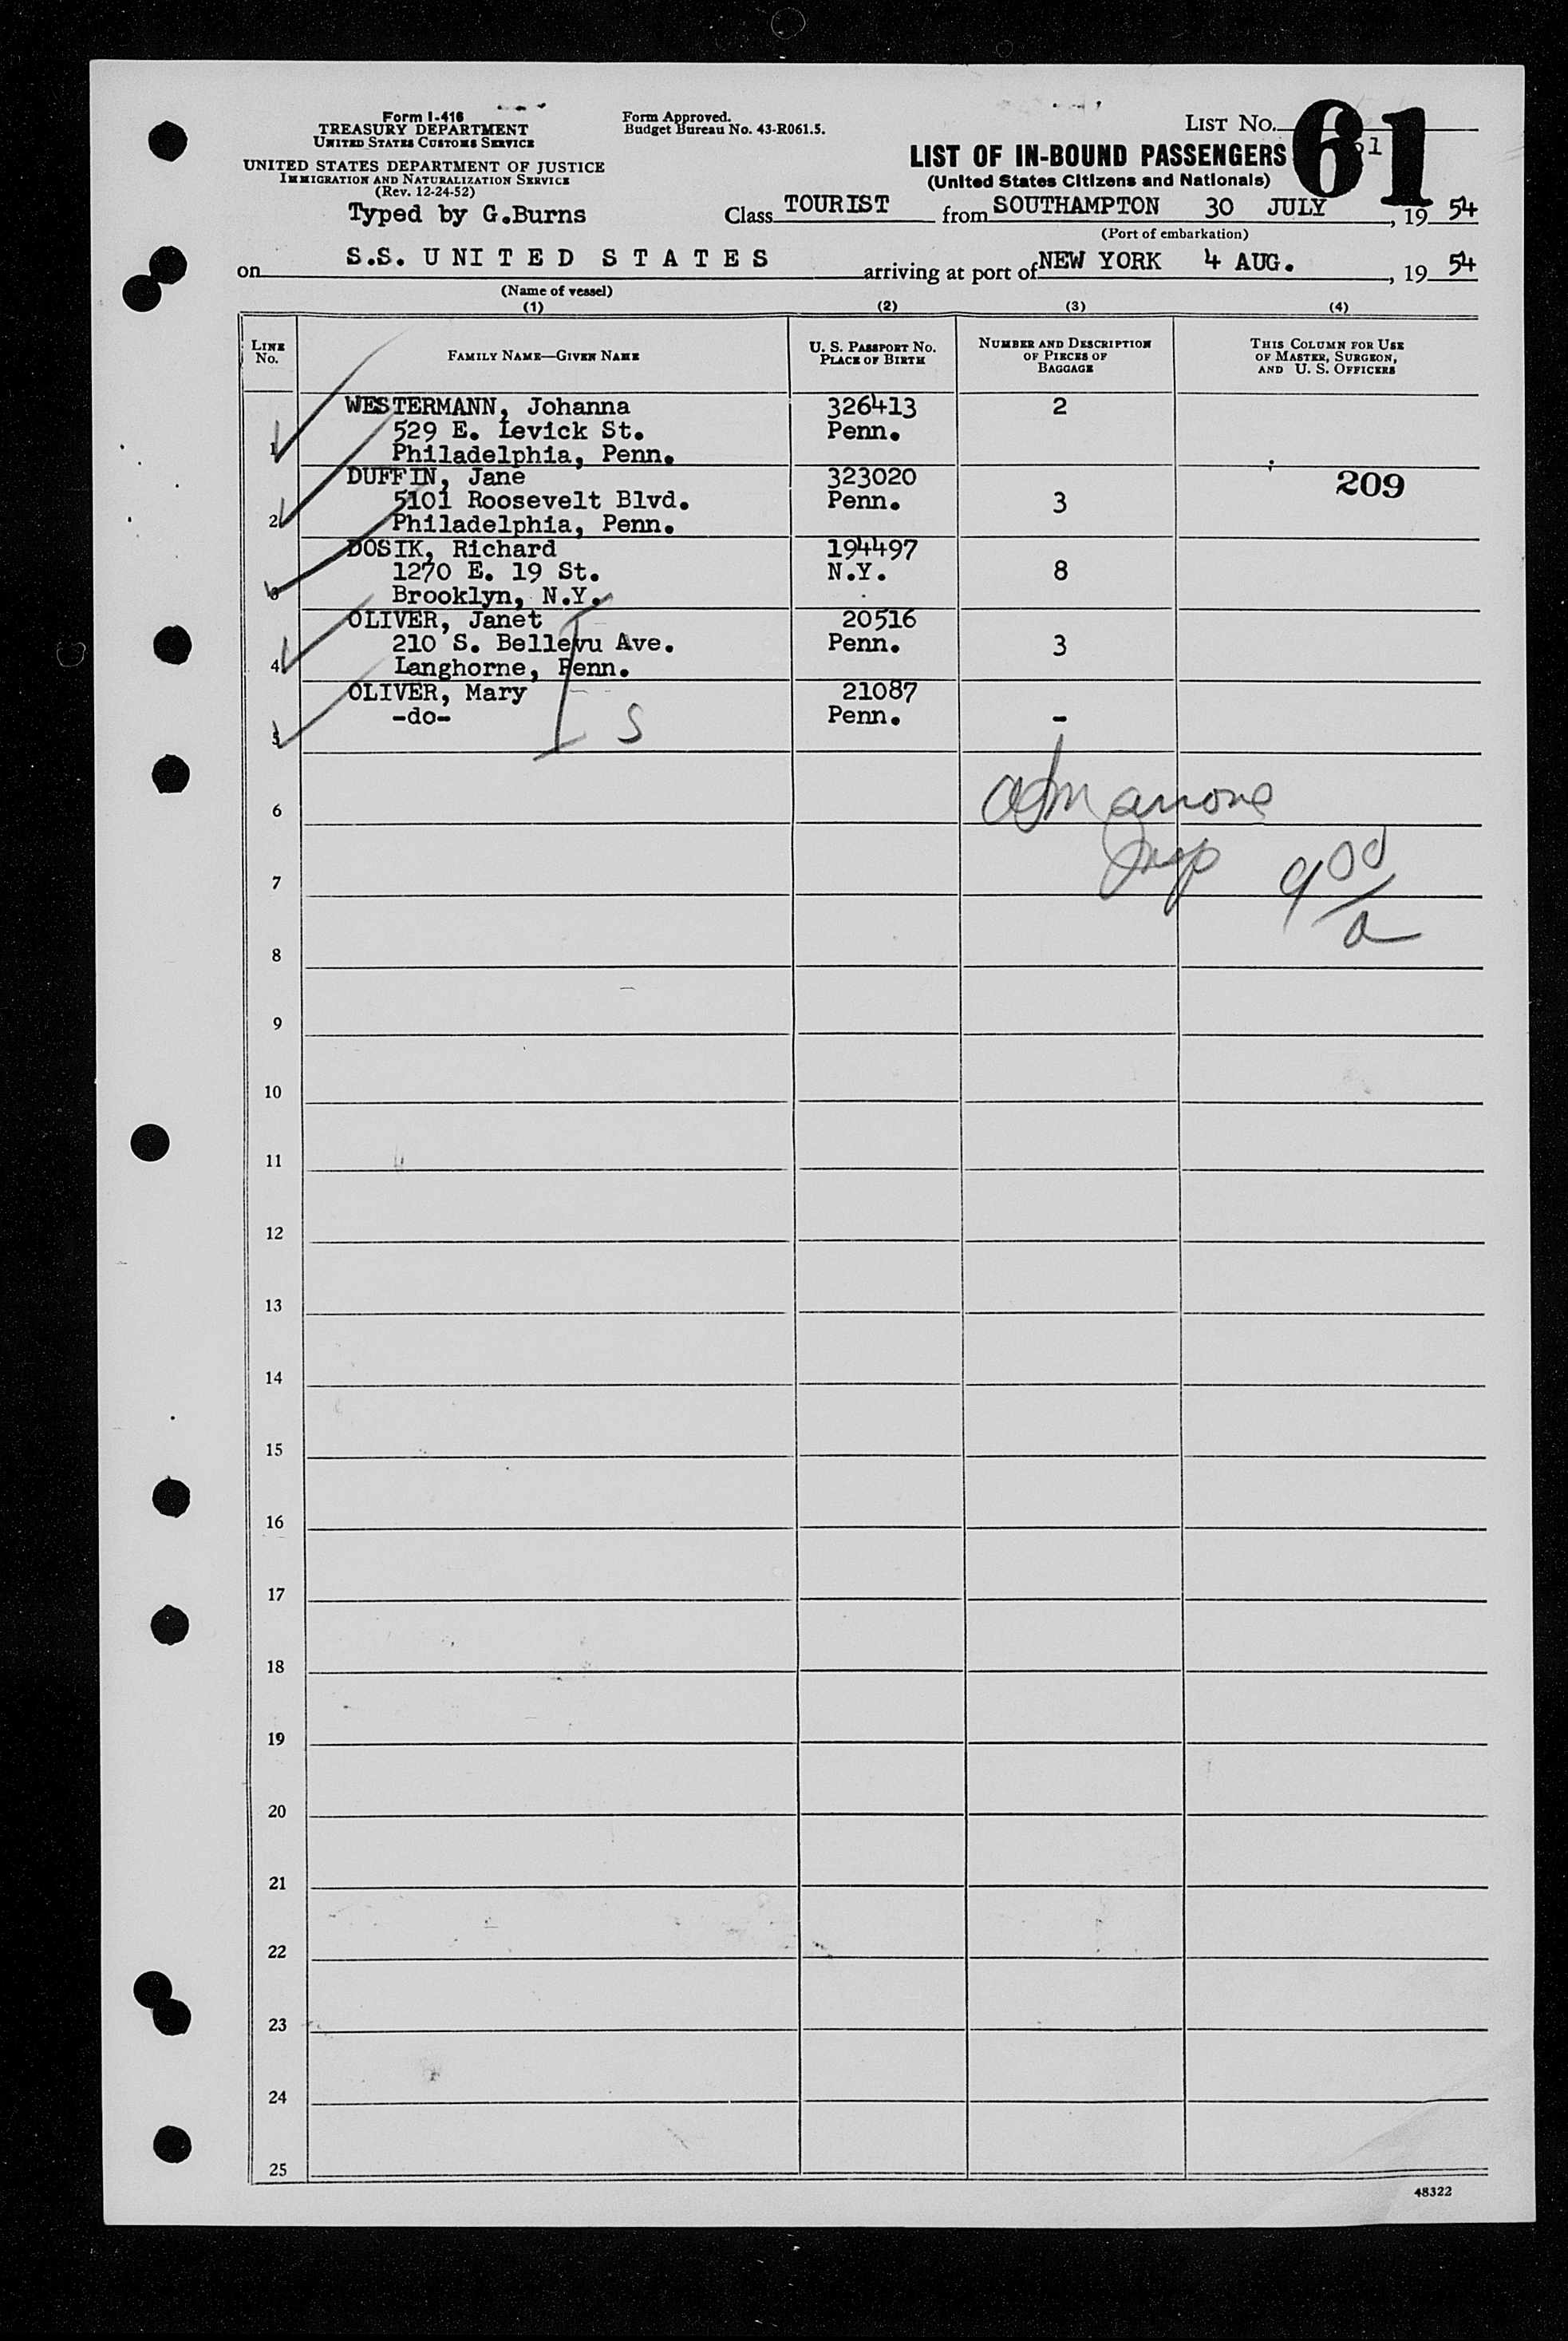 Form I-416
TREASURY DEPARTMENT
UNITED STATES CUSTOMS SERVICE
UNITED STATES DEPARTMENT OF JUSTICE
IMMIGRATION AND NATURALIZATION SERVICE
(Rev. 12-24-52)
Typed by G.Burns
Form Approved.
Budget Bureau No. 43-R061.5.
LIST NO. 61
LIST OF IN-BOUND PASSENGERS
(United States Citizens and Nationals)
Class TOURIST from SOUTHAMPTON 30 JULY, 19 54
(Port of embarkation)
on S.S. UNITED STATES arriving at port of NEW YORK 4 AUG., 19 54
(Name of vessel)
(1) (2) (3) (4)
LINE No.
FAMILY NAME—GIVEN NAME
U. S. PASSPORT NO.
PLACE OF BIRTH
NUMBER AND DESCRIPTION
OF PIECES OF
BAGGAGE
THIS COLUMN FOR USE
OF MASTER, SURGEON,
AND U. S. OFFICERS
WESTERMANN, Johanna 326413 2
529 E. Levick St. Penn.
1 Philadelphia, Penn.
DUFFIN, Jane 323020 209
5101 Roosevelt Blvd. Penn. 3
2 Philadelphia, Penn.
DOSIK, Richard 194497
1270 E. 19 St. N.Y. 8
3 Brooklyn, N.Y.
OLIVER, Janet 20516
210 S. Bellevu Ave. Penn. 3
4 Langhorne, Penn.
OLIVER, Mary 21087
-do- S Penn. -
5
6
7
8
9
10
11
12
13
14
15
16
17
18
19
20
21
22
23
24
25
48322